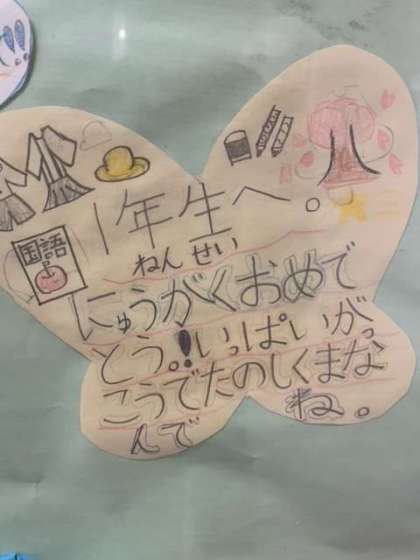 国語
1年生へ。
ねんせい
にゅうがくおめで
とう。!いっぱいがっ
こうでたのしくまな
んでね。